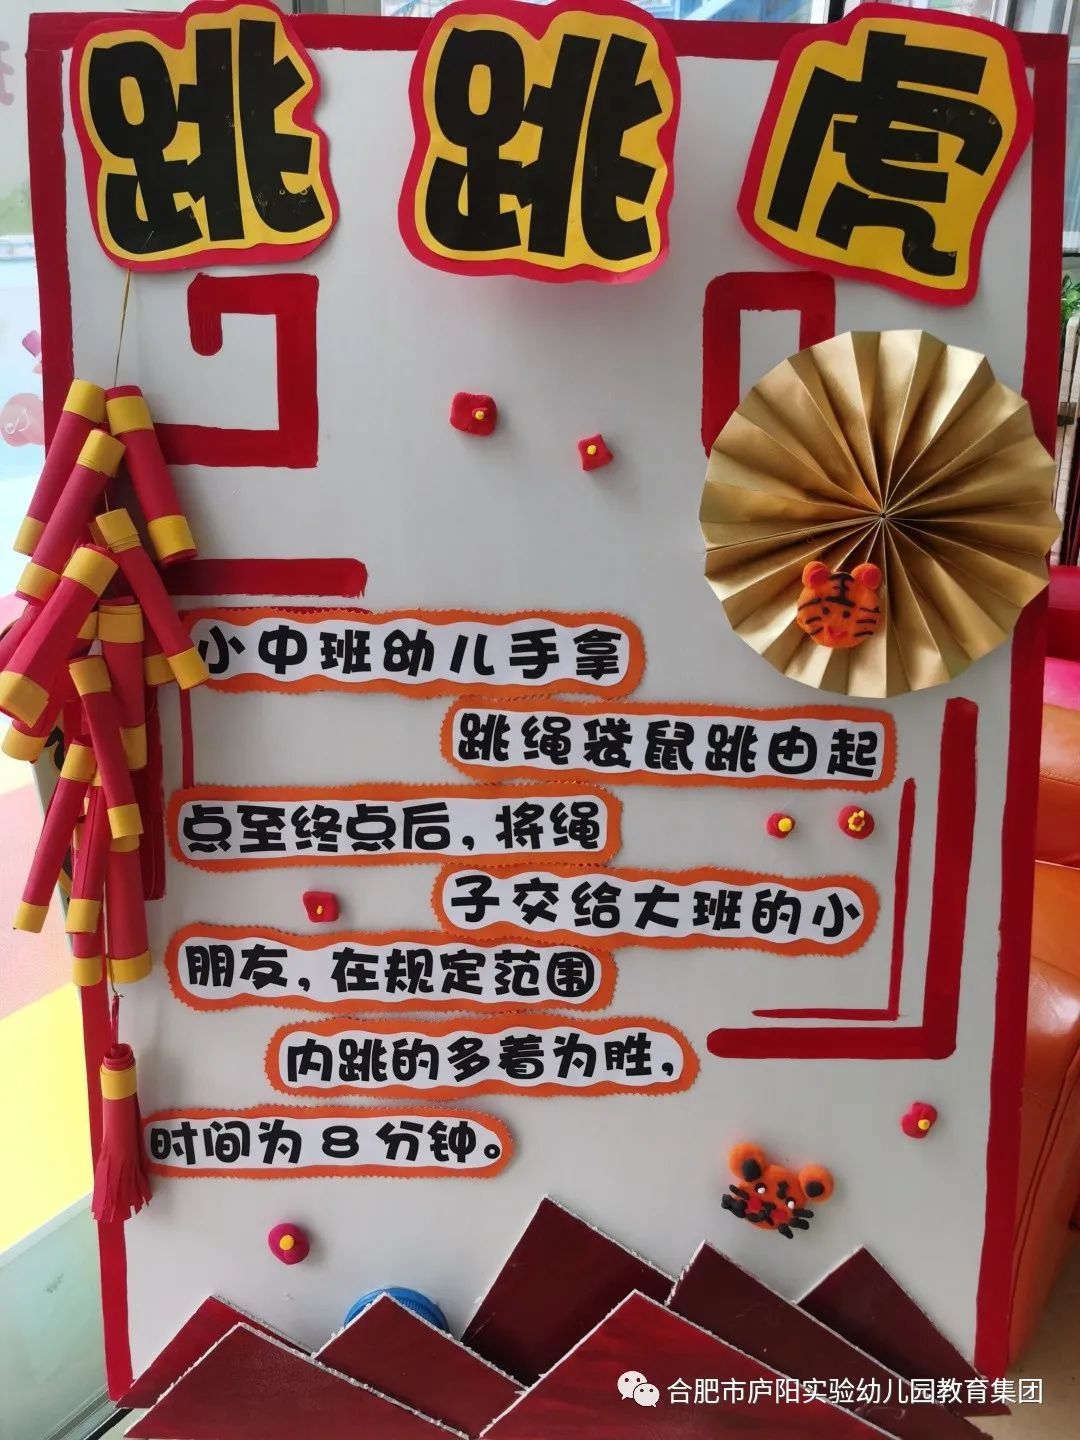 跳跳虎
小中班幼儿手拿
跳绳袋鼠跳由起
点至终点后，将绳
子交给大班的小
朋友，在规定范围
内跳的多着为胜，
时间为8分钟。
合肥市庐阳实验幼儿园教育集团